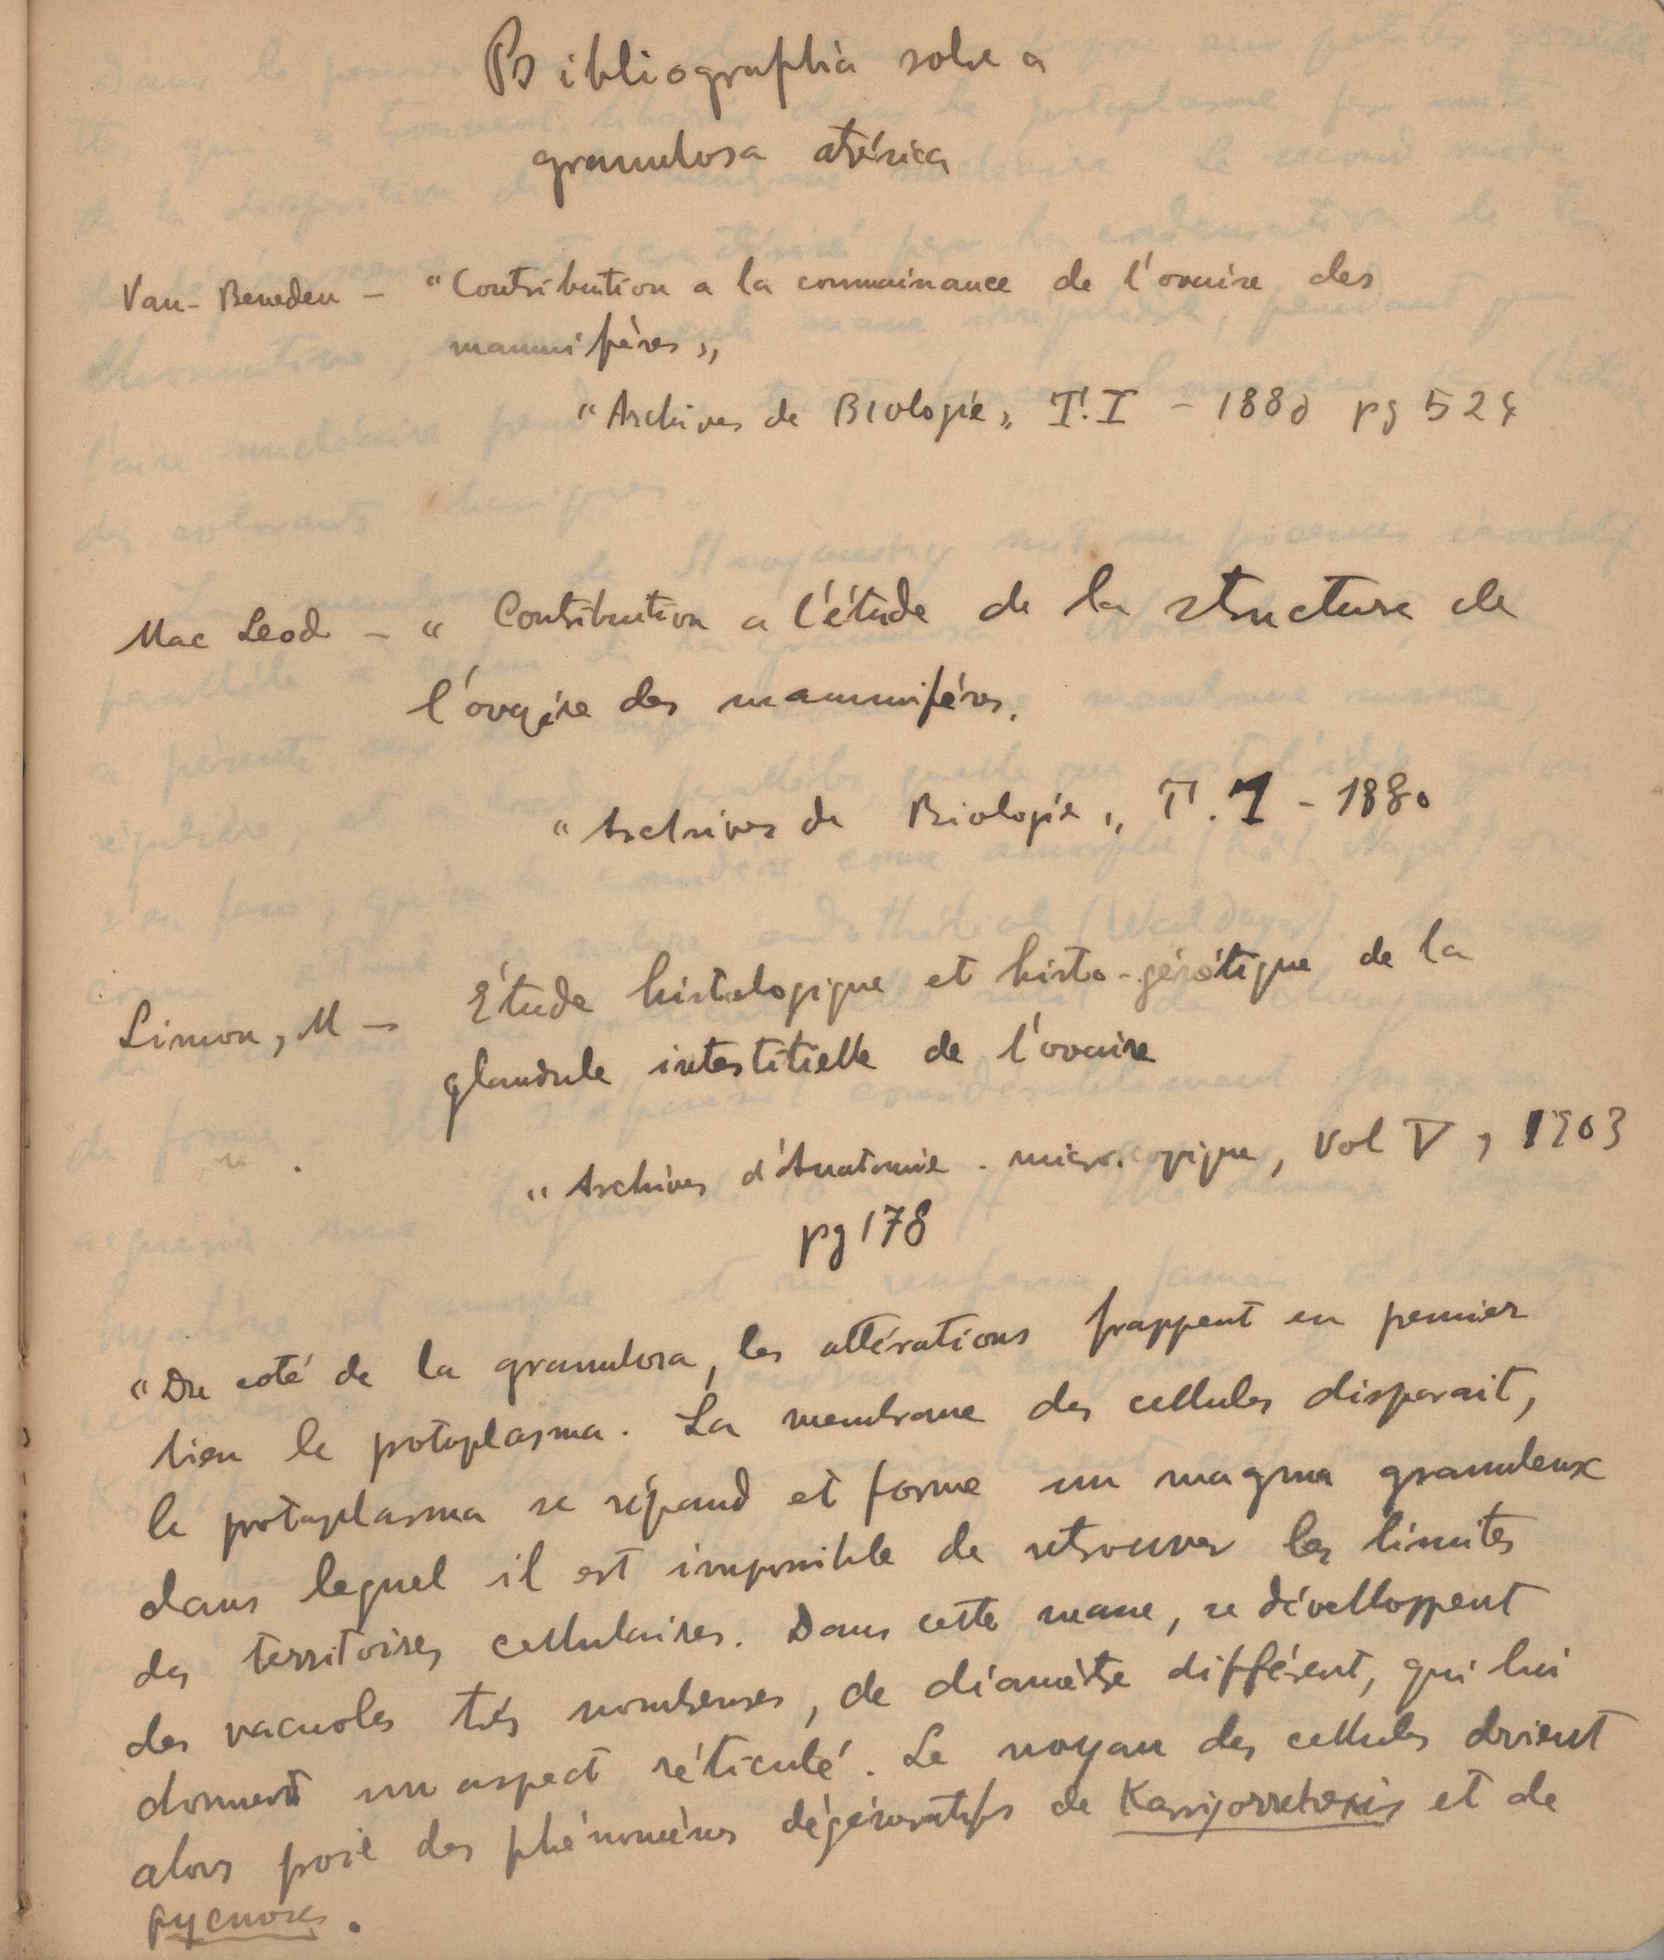 Bibliographia sobre a
granulosa atrésica
Van-Beneden - "Contribution a la connainance de l'ovaire des
mammifères„
"Archives de Biologie„ T. I - 1880 pg 524
Mac Leod - " Contribution a l'étude de la structure de
l'ovaire des mammiféres.
"Archives de Biologie„ T. 1 - 1880
Limon, M - Étude histologique et histo-génétique de la
glandule intestitielle de l'ovaire
"Archives d'Anatomie microscopique, Vol V, 1903
pg 178
"Du coté de la granulosa, les altérations frappent en premier
lieu le protoplasma. La membrane des cellules disparait,
le protoplasma se répand et forme un magma granuleux
dans lequel il est impossible de retrouver les limites
des territoires cellulaires. Dans cette masse, se dévelloppent
des vacuoles trés nombreuses, de diamètre différent, qui lui
donnent un aspect réticulé. Le noyau des cellules devient
alors proie des phénomènes dégénératifs de Karryorrehexis et de
pycnoses.